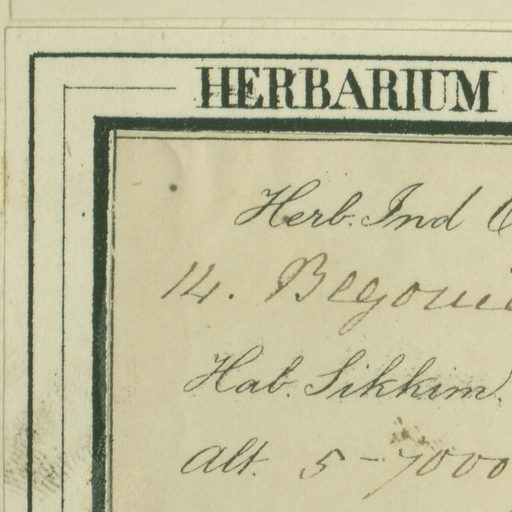 HERBARIUM
Herb. Ind
14. Begonia
Hab. Sikkim.
Alt. 5-7000